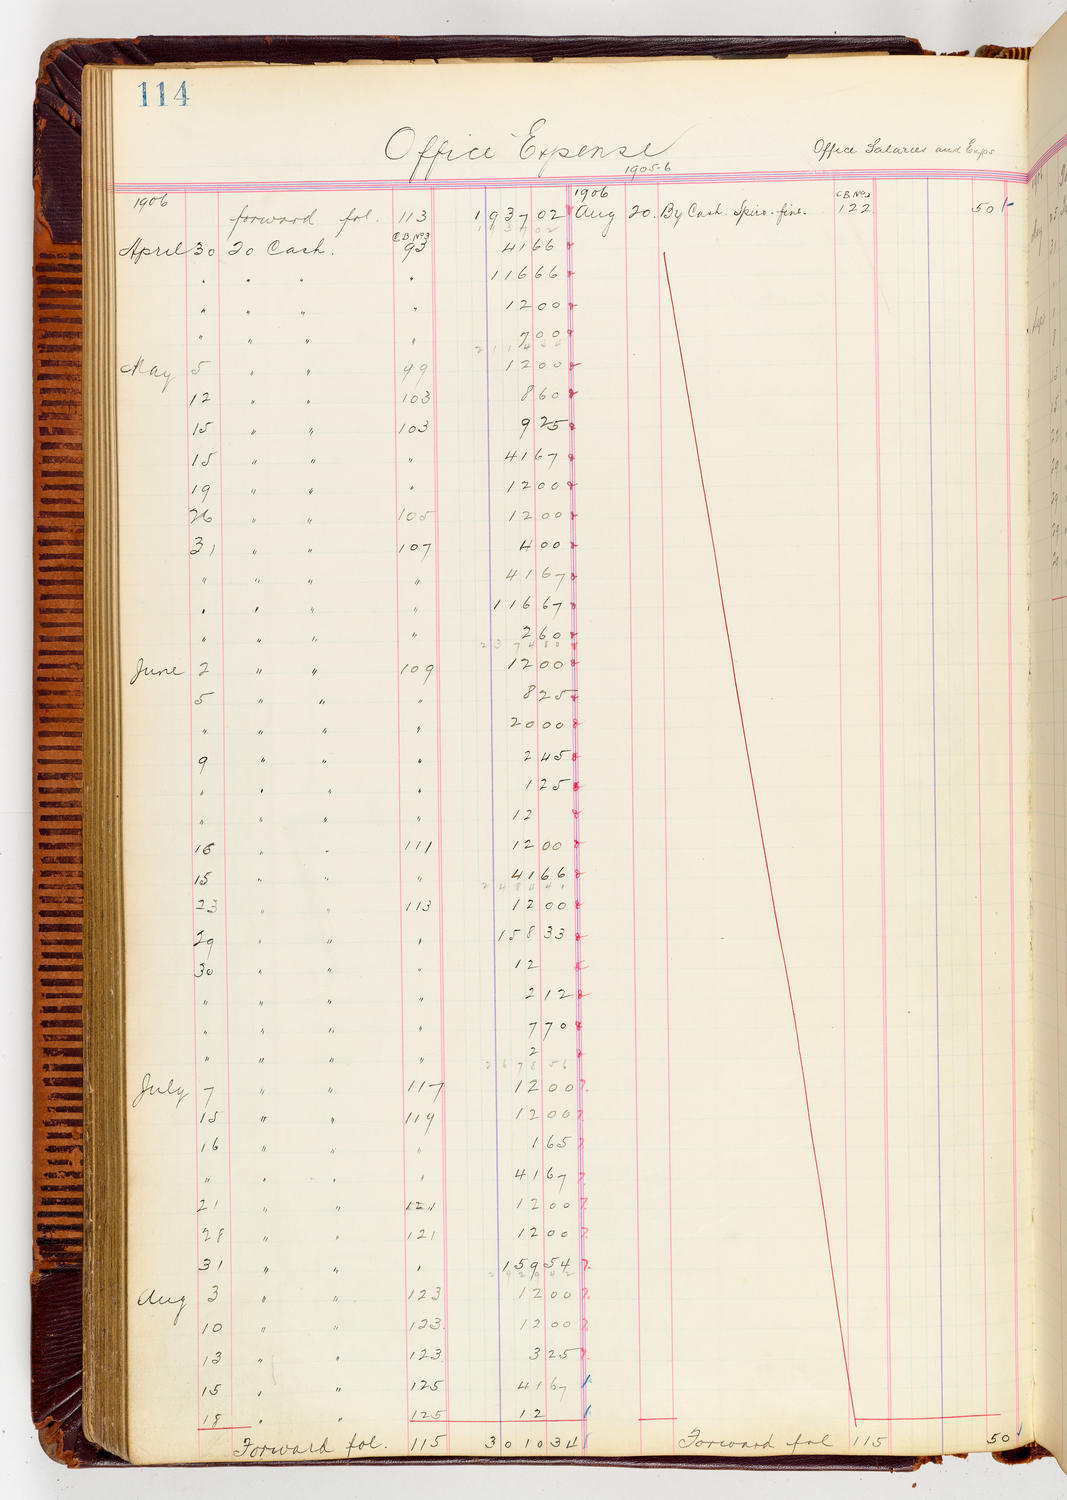 114
Office Expense
Office Salaries and Exps
1905-6
1906 1906 C.B.No3
forward fol. 113 1937 02 Aug 20. By Cash. Spiro. fine. 122 50
1937 02
C.B.No3
April 30 To Cash. 93 41 66
" " " " 116 66
" " " " 12 00
" " " " 7 00
May 5 " " 99 12 00
12 " " 103 8 60
15 " " 103 9 25
15 " " " 41 67
19 " " " 12 00
26 " " 105 12 00
31 " " 107 4 00
" " " " 41 67
" " " " 116 67
" " " " 2 60
2374 80
June 2 " " 109 12 00
5 " " " 8 25
" " " " 20 00
9 " " " 2 45
" " " " 1 25
" " " " 12
16 " " 111 12 00
15 " " " 41 66
2484 41
23 " " 113 12 00
29 " " " 158 33
30 " " " 12
" " " " 2 12
" " " " 7 70
" " " " 2
2678 56
July 7 " " 117 12 00
15 " " 119 12 00
16 " " " 1 65
" " " " 41 67
21 " " 121 12 00
28 " " 121 12 00
31 " " " 159 54
2929 42
Aug 3 " " 123 12 00
10 " " 123. 12 00
13 " " 123 3 25
15 " " 125 41 67
18 " " 125 12
Forward fol. 115 3010 34 Forward fol 115 50